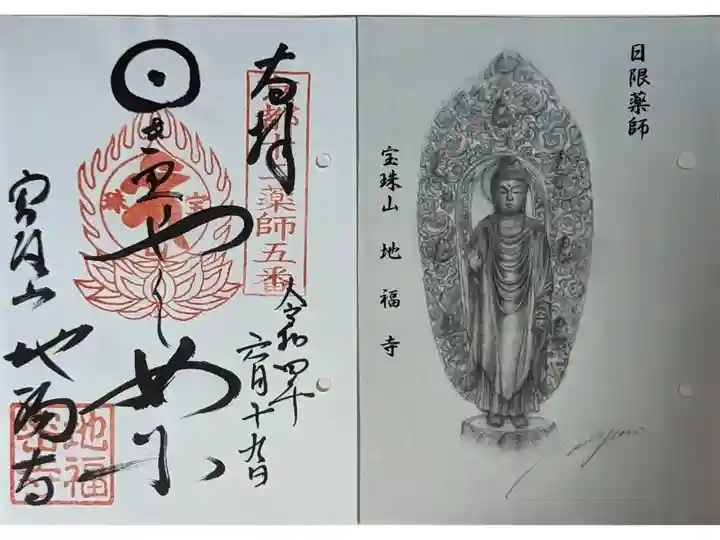 奉拝
京都十二薬師五番
令和四年
六月十九日
宝珠
日
やくし
宝珠山
地福寺
地福
寺
日限薬師
宝珠山 地福寺